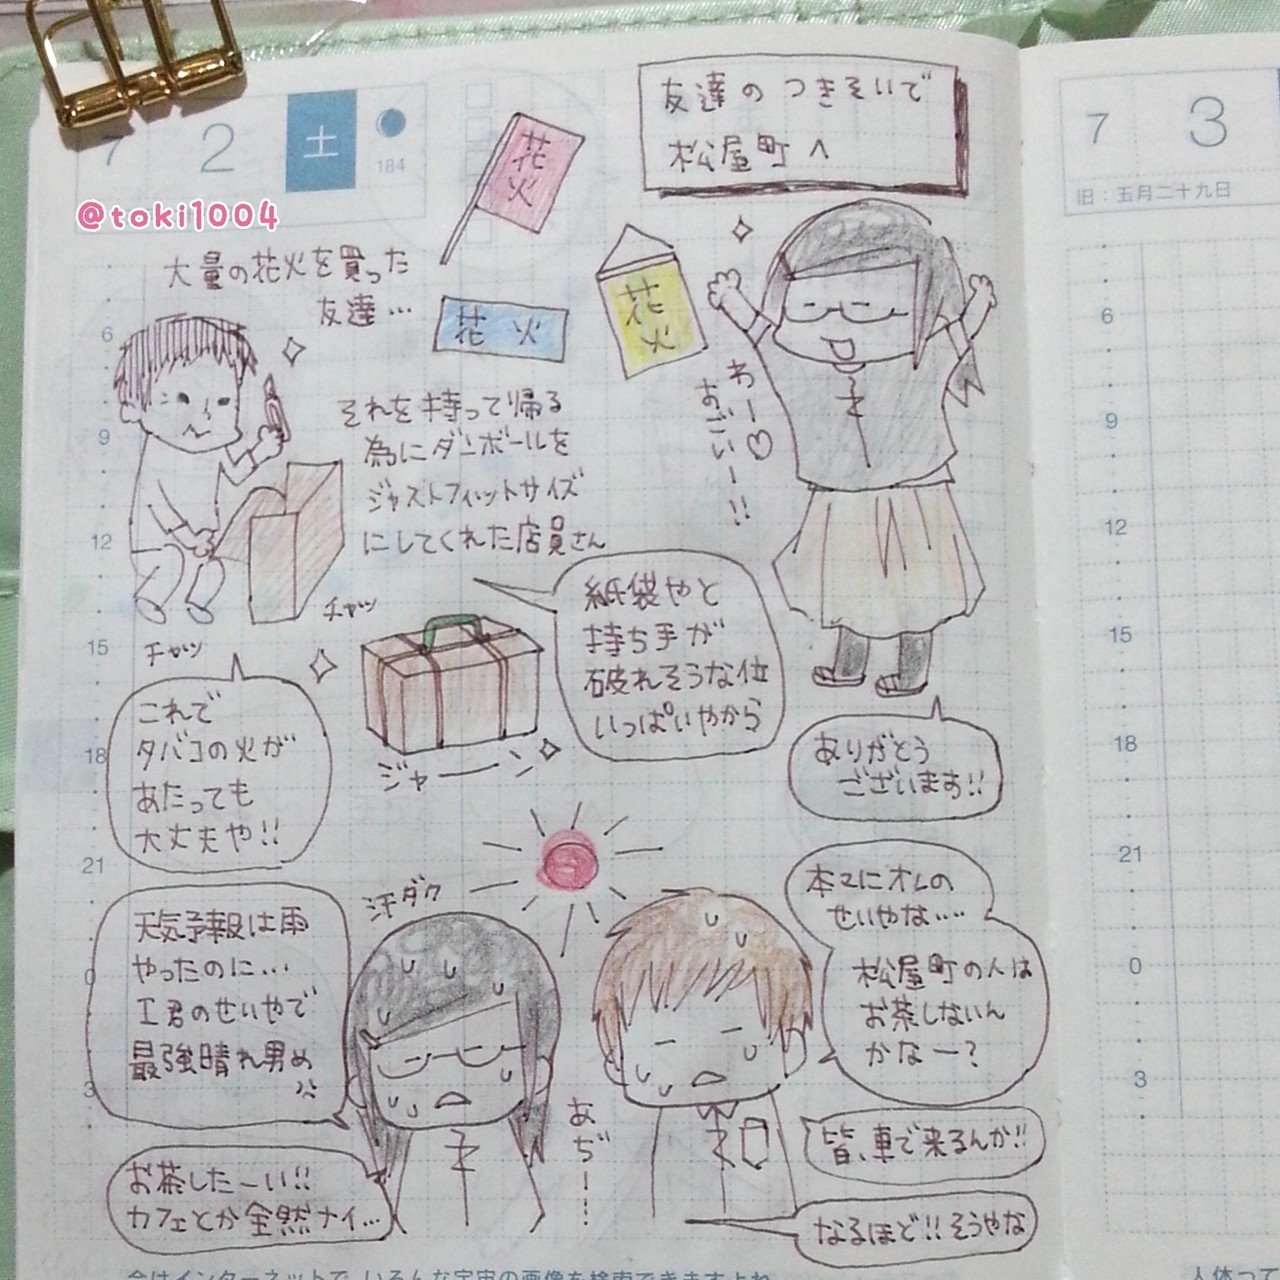 7 2 土
184
@toki1004
友達のつきそいで
松屋町へ
花火
花火
花火
大量の花火を買った
友達…
それを持って帰る
為にダンボールを
ジャストフィットサイズ
にしてくれた店員さん
わー♡
おごいー!!
チャッ
チャッ
これで
タバコの火が
あたっても
大丈夫や!!
紙袋やと
持ち手が
破れそうな位
いっぱいやから
ジャーン
ありがとう
ございます!!
汗ダク
天気予報は雨
やったのに…
I君のせいやで
最強晴れ男め
お茶したーい!!
カフェとか全然ナイ…
あぢー…
本マにオレの
せいやな…
松屋町の人は
お茶しないん
かなー?
皆、車で来るんか!!
なるほど!!そうやな
6
9
12
15
18
21
0
3
7 3
旧:五月二十九日
6
9
12
15
18
21
0
3
今はインターネットで、いろんな宇宙の画像を検索できますよね
人体って